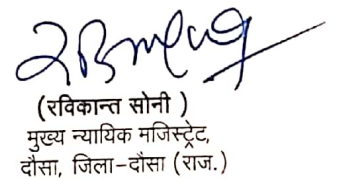 (रविकान्त सोनी )
मुख्य न्यायिक मजिस्ट्रेट,
दौसा, जिला-दौसा (राज.)